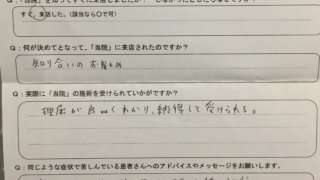 すぐ、来店した。（該当なら○で可）
Q：何が決めてとなって、「当院」に来店されたのですか？
知り合いのお勧め
Q：実際に「当院」の施術を受けられていかがですか？
理屈が良くわかり、納得して受けられる。
Q：同じような症状で苦しんでいる患者さんへのアドバイスやメッセージをお願いします。